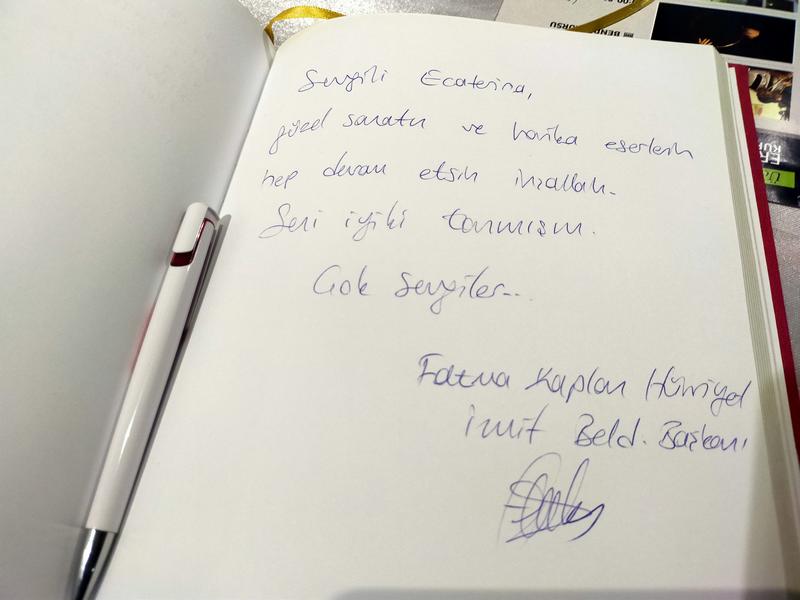 Sevgili Ecaterina,
güzel sanatın ve harika eserlerin
hep devam etsin inşallah.
Seni iyiki tanımışım.
Çok Sevgiler...
Fatma Kaplan Hürriyet
İzmit Beld. Başkanı